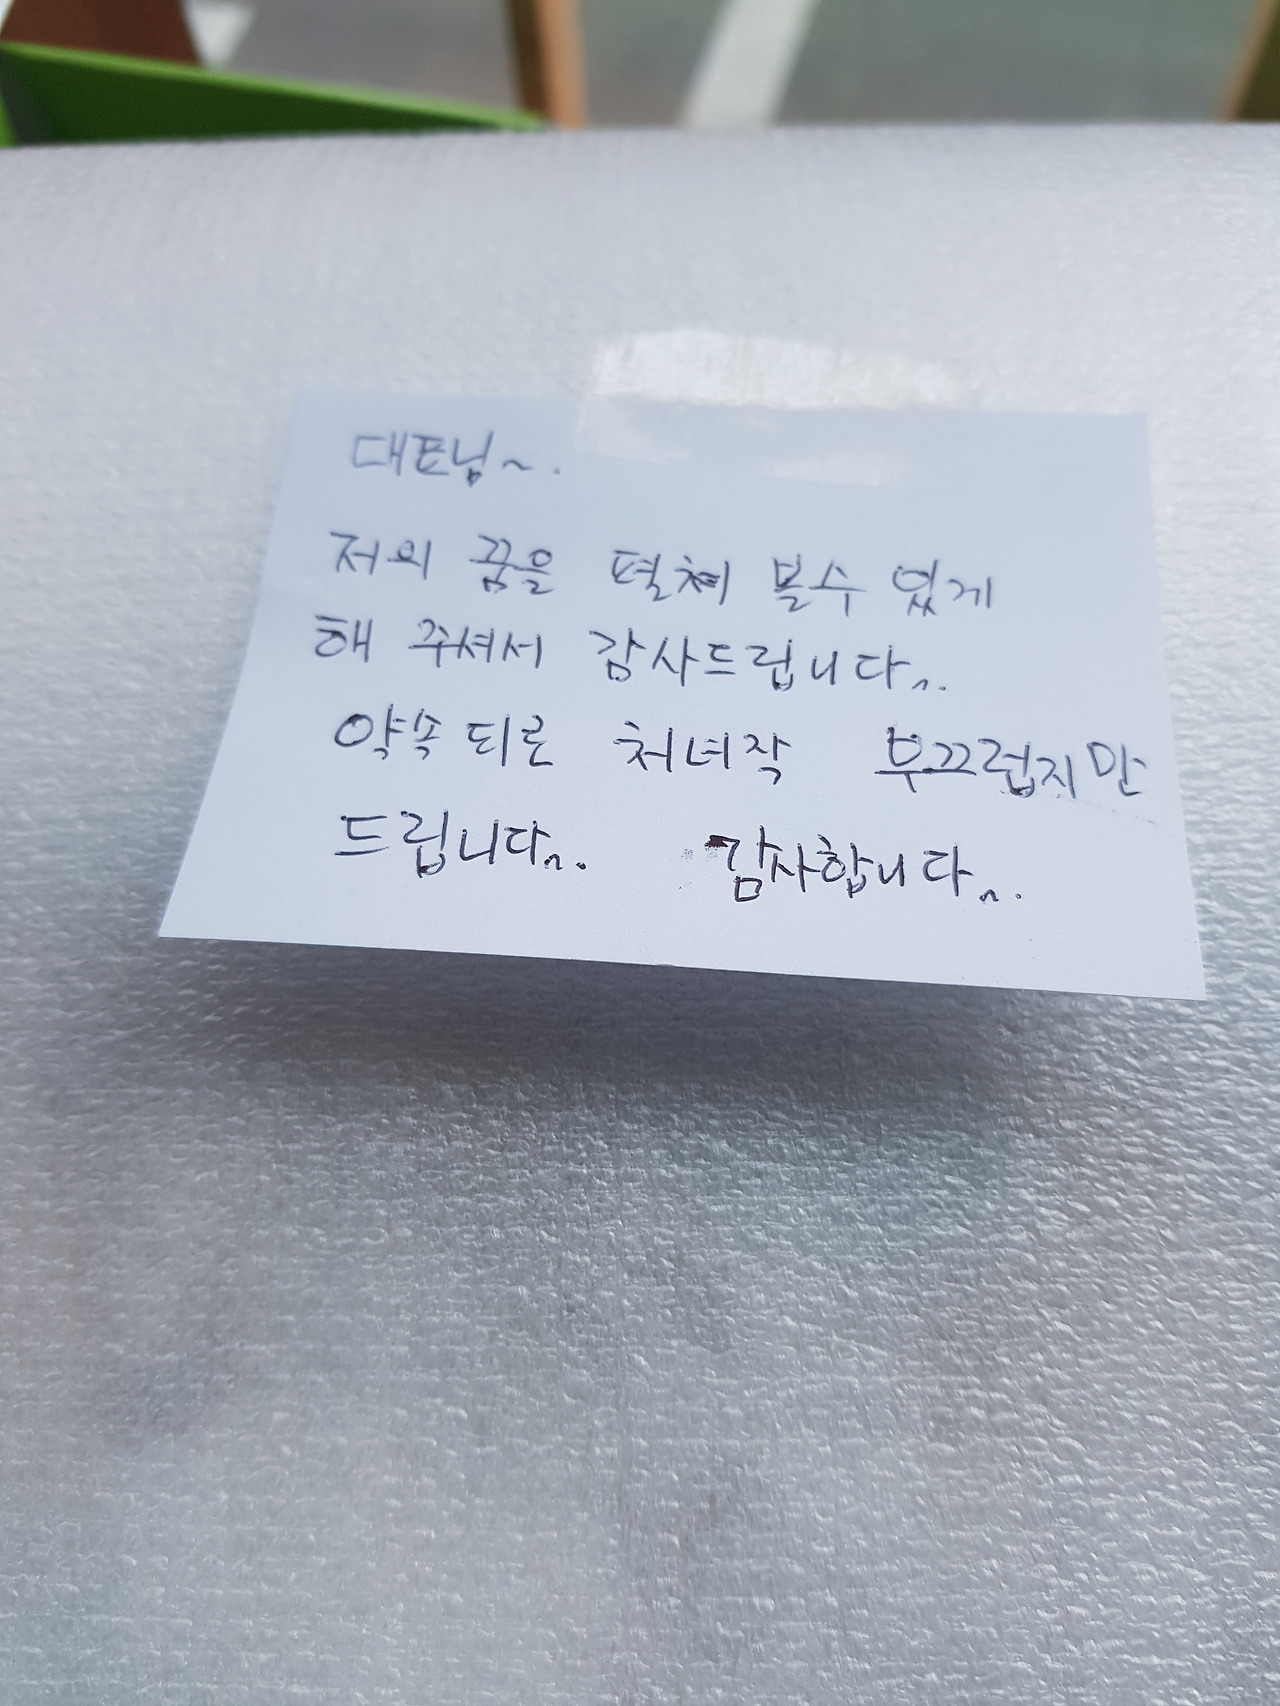 대표님~.
저의 꿈을 펼쳐 볼수 있게
해 주셔서 감사드립니다^^.
약속 되로 처녀작 부끄럽지만
드립니다^^. 감사합니다^^.